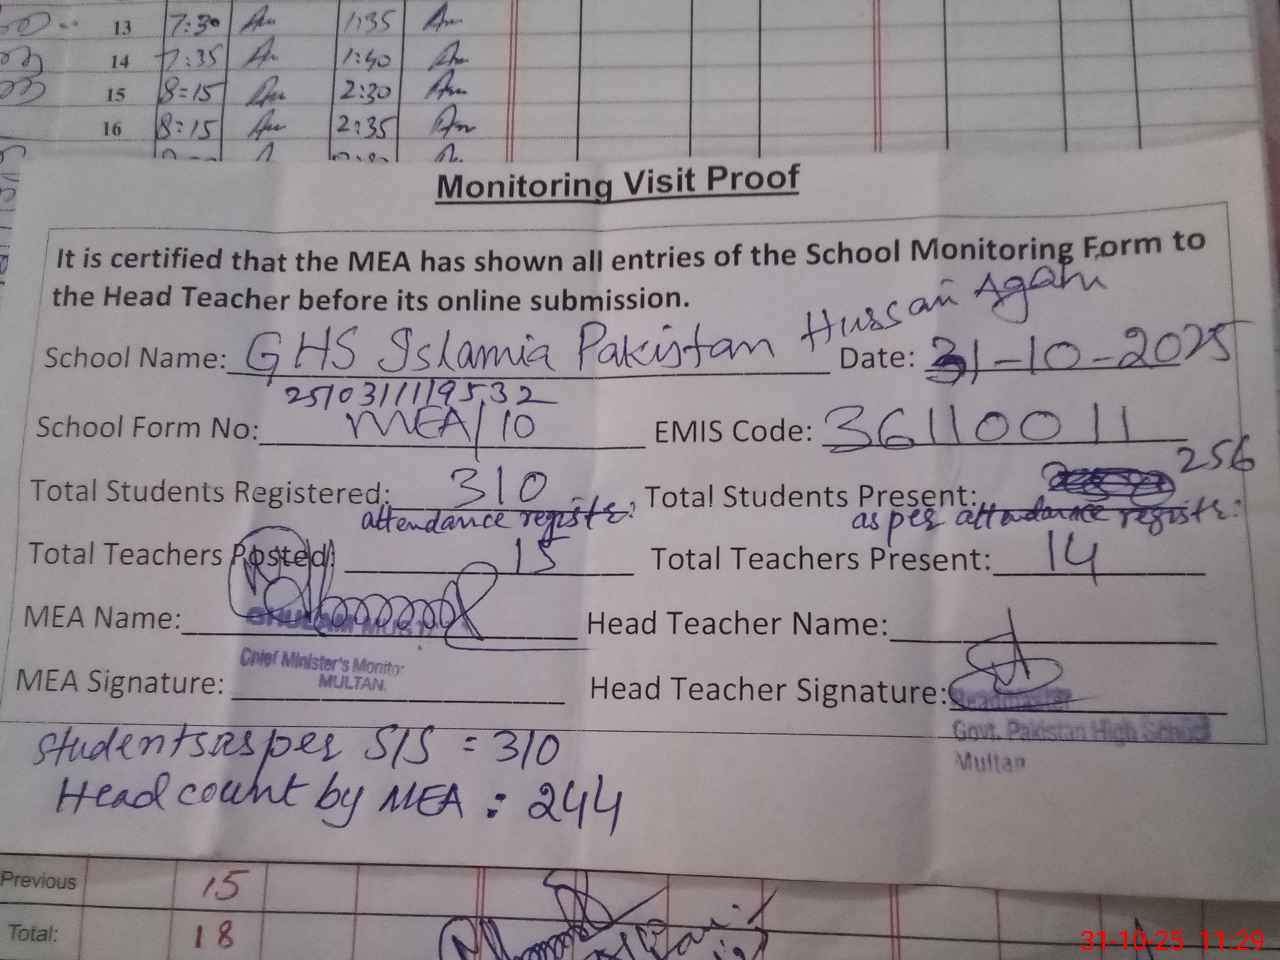 13 7:30 1:35
14 7:35 1:40
15 8=15 2:30
16 8:15 2:35
Monitoring Visit Proof
It is certified that the MEA has shown all entries of the School Monitoring Form to
the Head Teacher before its online submission.
School Name: GHS Islamia Pakistan Hussain Agahi Date: 31-10-2025
251031119532
School Form No: MEA/10 EMIS Code: 36110011
Total Students Registered: 310 Total Students Present: 256
attendance register: as per attendance register:
Total Teachers Posted: 15 Total Teachers Present: 14
MEA Name: Head Teacher Name:
Chief Minister's Monitor
MULTAN.
MEA Signature: Head Teacher Signature:
Headmaster
Govt. Pakistan High School
Multan
students as per SIS = 310
Head count by MEA : 244
Previous 15
Total: 18
31-10-25 11:29